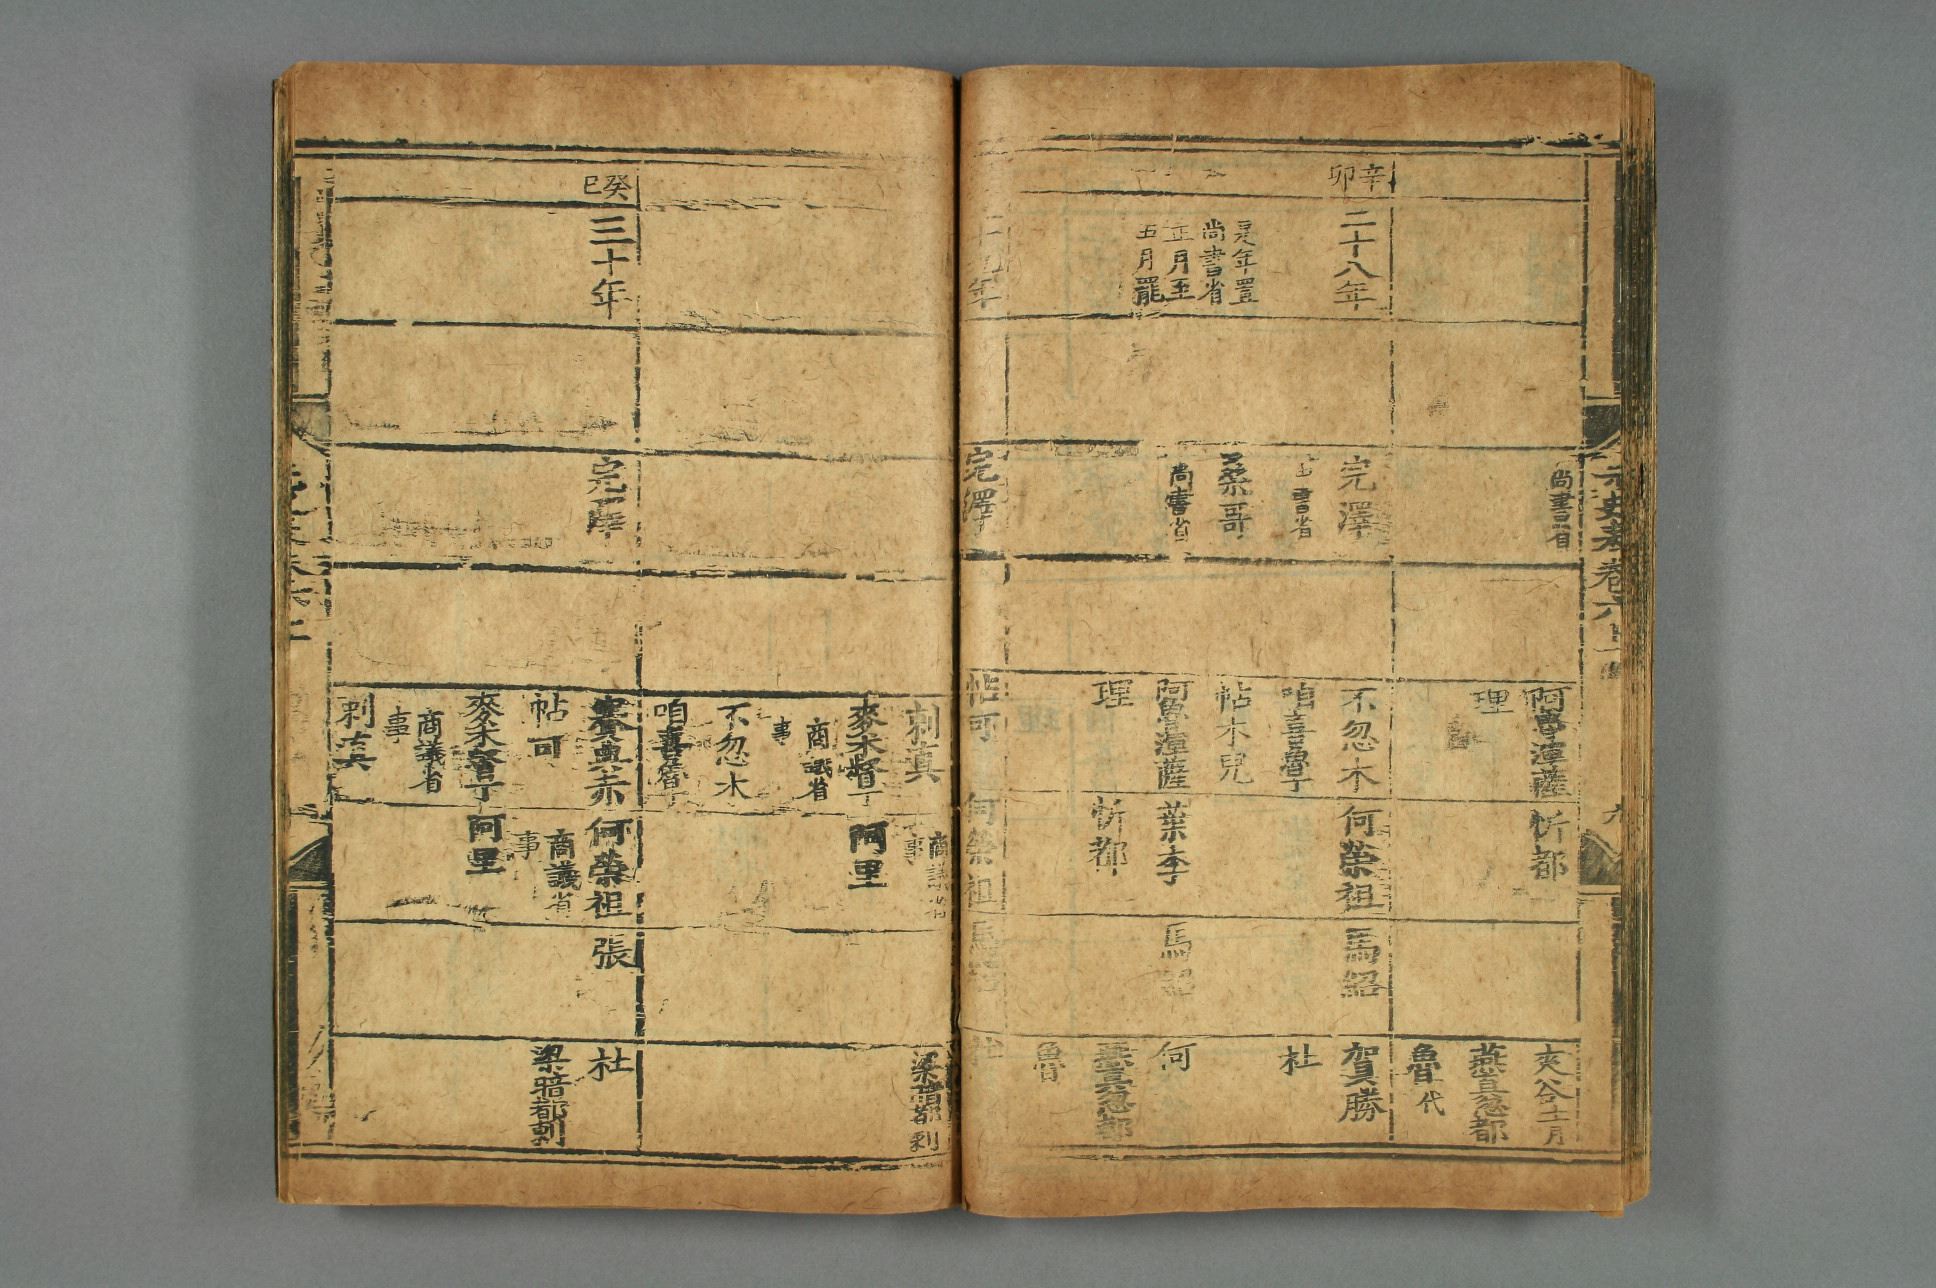 尚書省
阿魯渾薩
理
忻都
夾谷十一月
燕真忽都
魯代
辛卯
二十八年
是年置
尚書省
正月至
五月罷
完澤
書省
桑哥
尚書省
不忽木
咱喜魯丁
帖木兒
阿魯渾薩
理
何榮祖
葉李
忻都
馬紹
馬紹
賀勝
杜
何
燕真忽都
魯
年
完澤
帖可
何榮祖
馬紹
杜
刺真
麥朮督丁
商議省
事
不忽木
咱喜魯丁
商議省
事
阿里
梁暗都剌
癸巳
三十年
完澤
賽典赤
帖可
麥朮督丁
商議省
事
刺真
何榮祖
商議省
事
阿里
張
杜
梁暗都剌